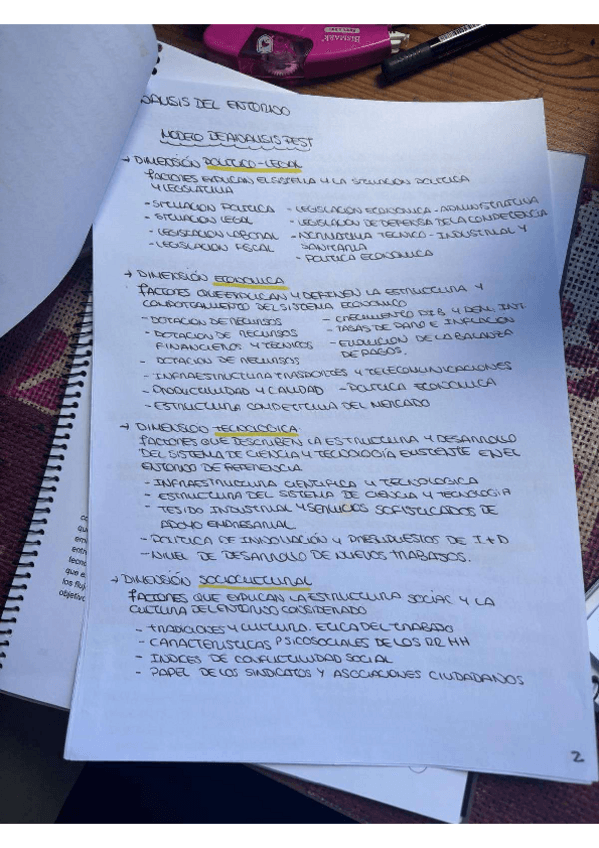 ANALISIS DEL ENTORNO
MODELO DE ANALISIS PEST
→ DIMENSIÓN POLITICO-LEGAL
FACTORES EXPLICAN EL SISTEMA Y LA SITUACION POLITICA
Y LEGISLATIVA
- SITUACION POLITICA
- SITUACION LEGAL
- LEGISLACION LABORAL
- LEGISLACION FISCAL
- LEGISLACION ECONOMICA - ADMINISTRATIVA
- LEGISLACIÓN DE DEFENSA DE LA COMPETENCIA
- NORMATIVA TECNICO - INDUSTRIAL Y
SANITARIA
- POLITICA ECONOMICA
→ DIMENSIÓN ECONOMICA
FACTORES QUE EXPLICAN Y DEFINEN LA ESTRUCTURA Y
COMPORTAMIENTO DEL SISTEMA ECONOMICO
- DOTACION DE RECURSOS
- DOTACION DE RECURSOS
FINANCIEROS Y TECNICOS
- DOTACION DE RECURSOS
- CRECIMIENTO PIB Y INT.
- TASAS DE PARO E INFLACION
- EVOLUCION DE LA BALANZA
DE PAGOS.
- INFRAESTRUCTURA TRASPORTES Y TELECOMUNICACIONES
- PRODUCTIVIDAD Y CALIDAD - POLITICA ECONOMICA
- ESTRUCTURA COMPETITIVA DEL MERCADO
→ DIMENSIÓN TECNOLOGICA
FACTORES QUE DESCRIBEN LA ESTRUCTURA Y DESARROLLO
DEL SISTEMA DE CIENCIA Y TECNOLOGÍA EXISTENTE EN EL
ENTORNO DE REFERENCIA
- INFRAESTRUCTURA CIENTIFICA Y TECNOLOGICA
- ESTRUCTURA DEL SISTEMA DE CIENCIA Y TECNOLOGIA
- TEJIDO INDUSTRIAL Y SERVICIOS SOFISTICADOS DE
APOYO EMPRESARIAL
- POLITICA DE INNOVACIÓN Y PRESUPUESTOS DE I+D
- NIVEL DE DESARROLLO DE NUEVOS TRABAJOS.
→ DIMENSIÓN SOCIOCULTURAL
FACTORES QUE EXPLICAN LA ESTRUCTURA SOCIAL Y LA
CULTURA DEL ENTORNO CONSIDERADO
- TRADICIONES Y CULTURO. ETICA DEL TRABAJO
- CARACTERISTICAS PSICOSOCIALES DE LOS RR HH
- INDICES DE CONFLICTIVIDAD SOCIAL
- PAPEL DE LOS SINDICATOS Y ASOCIACIONES CIUDADANOS
2